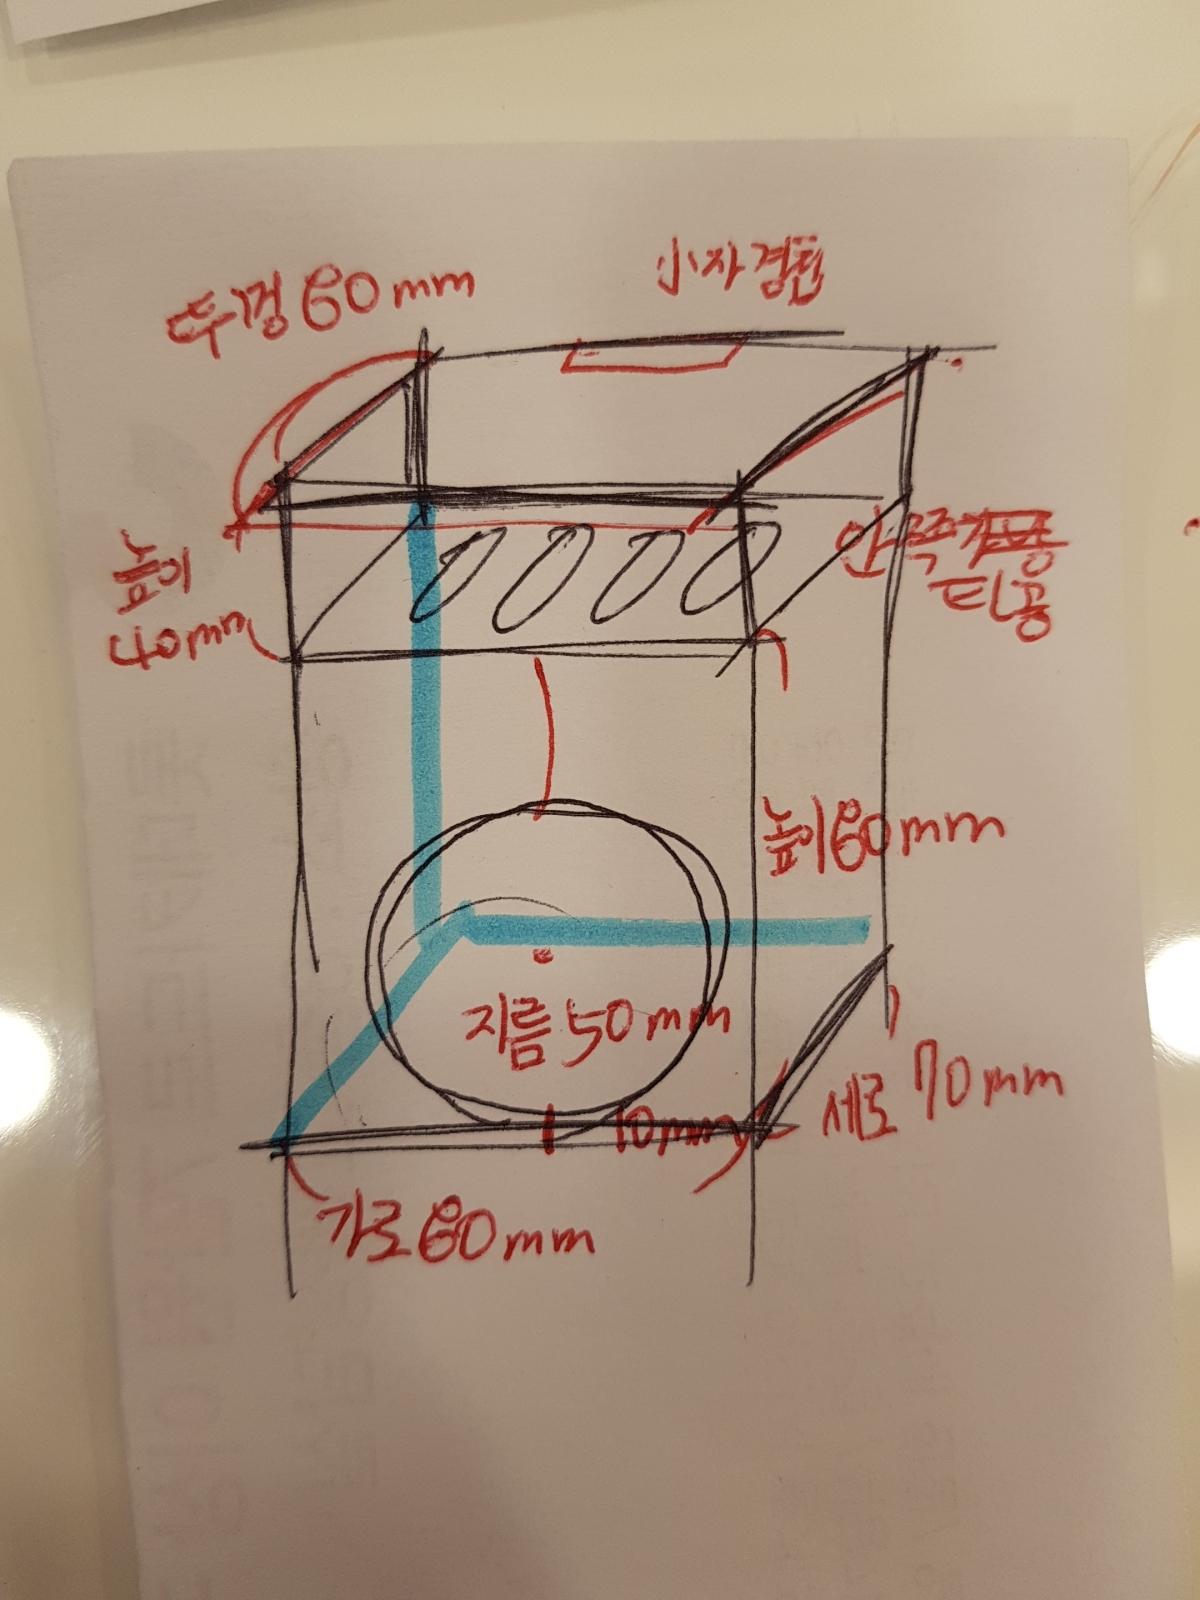 뚜껑 60mm
小자경첩
높이
40mm
타공
높이 60mm
지름 50mm
10mm
세로 70mm
가로 60mm